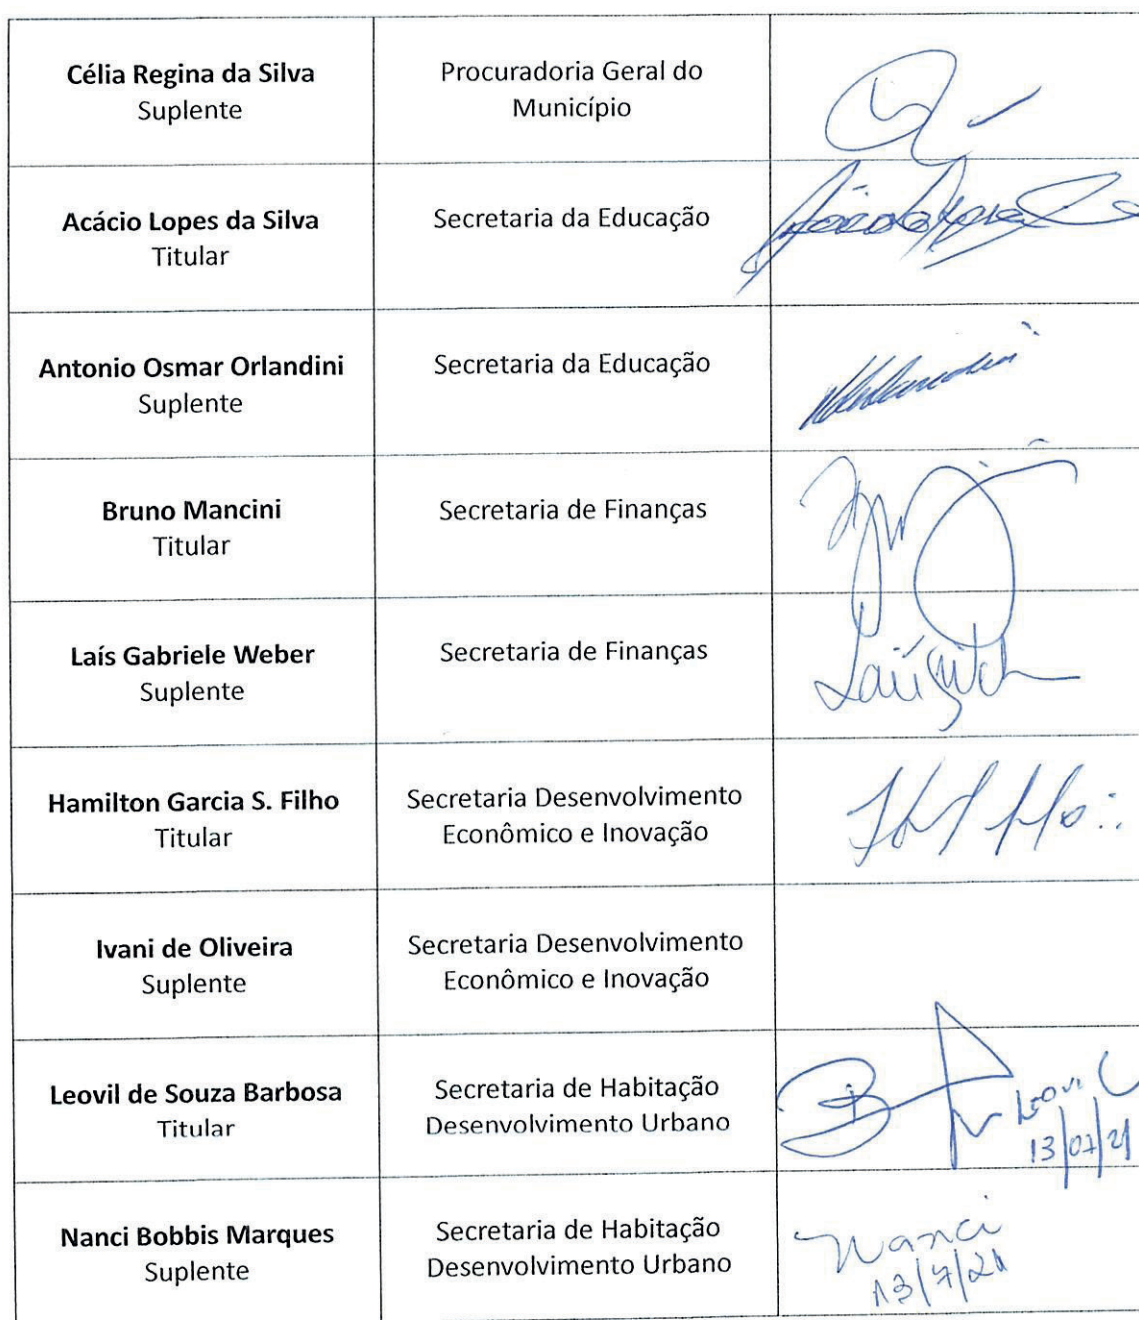 Célia Regina da Silva
Suplente
Procuradoria Geral do
Município
Acácio Lopes da Silva
Titular
Secretaria da Educação
Antonio Osmar Orlandini
Suplente
Secretaria da Educação
Bruno Mancini
Titular
Secretaria de Finanças
Laís Gabriele Weber
Suplente
Secretaria de Finanças
Hamilton Garcia S. Filho
Titular
Secretaria Desenvolvimento
Econômico e Inovação
Ivani de Oliveira
Suplente
Secretaria Desenvolvimento
Econômico e Inovação
Leovil de Souza Barbosa
Titular
Secretaria de Habitação
Desenvolvimento Urbano
13/07/21
Nanci Bobbis Marques
Suplente
Secretaria de Habitação
Desenvolvimento Urbano
Nanci
13/7/21